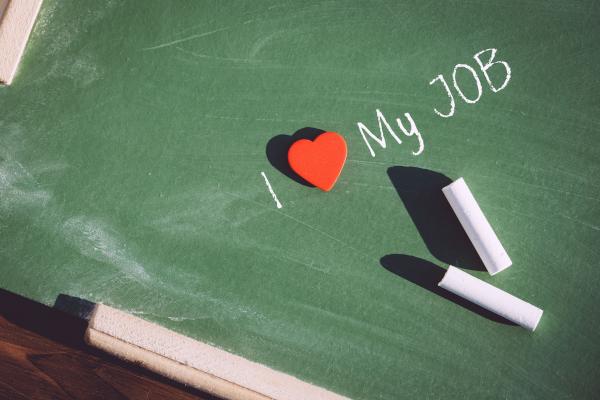 I My JOB